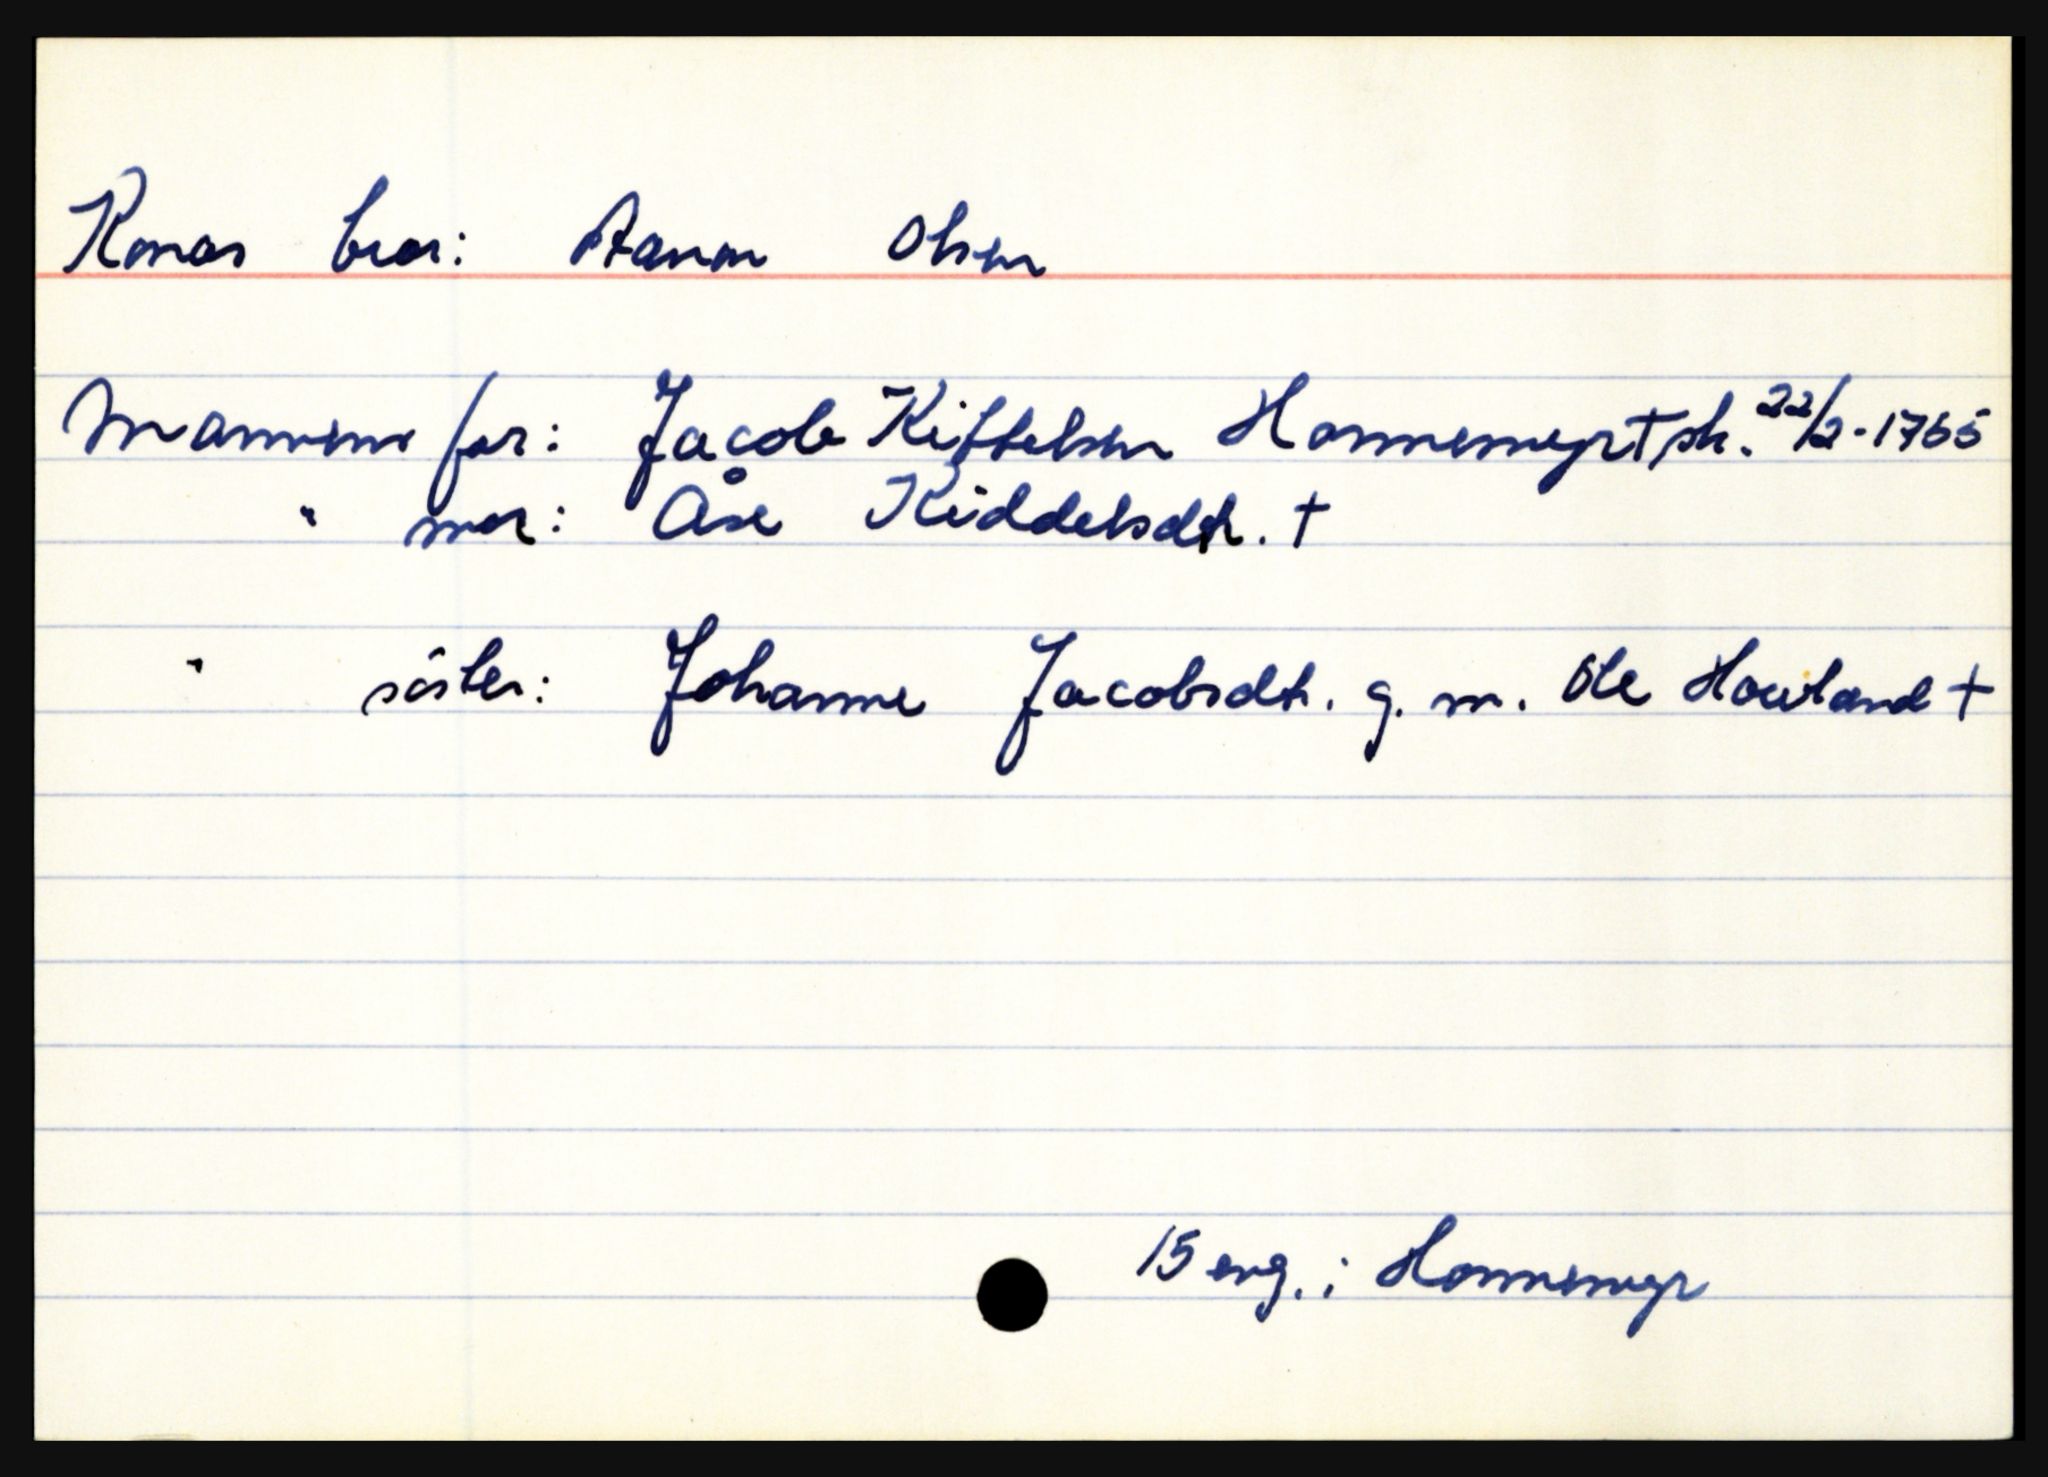 Konas bror: Aanon Olsen
Mannens far: Jacob Kittelsen Honnemyr † sk. 22/2-1765
" mor: Åse Kiddelsdtr. †
" söster: Johanne Jacobsdtr. g. m. Ole Howland †
15 eng. i Honnemyr